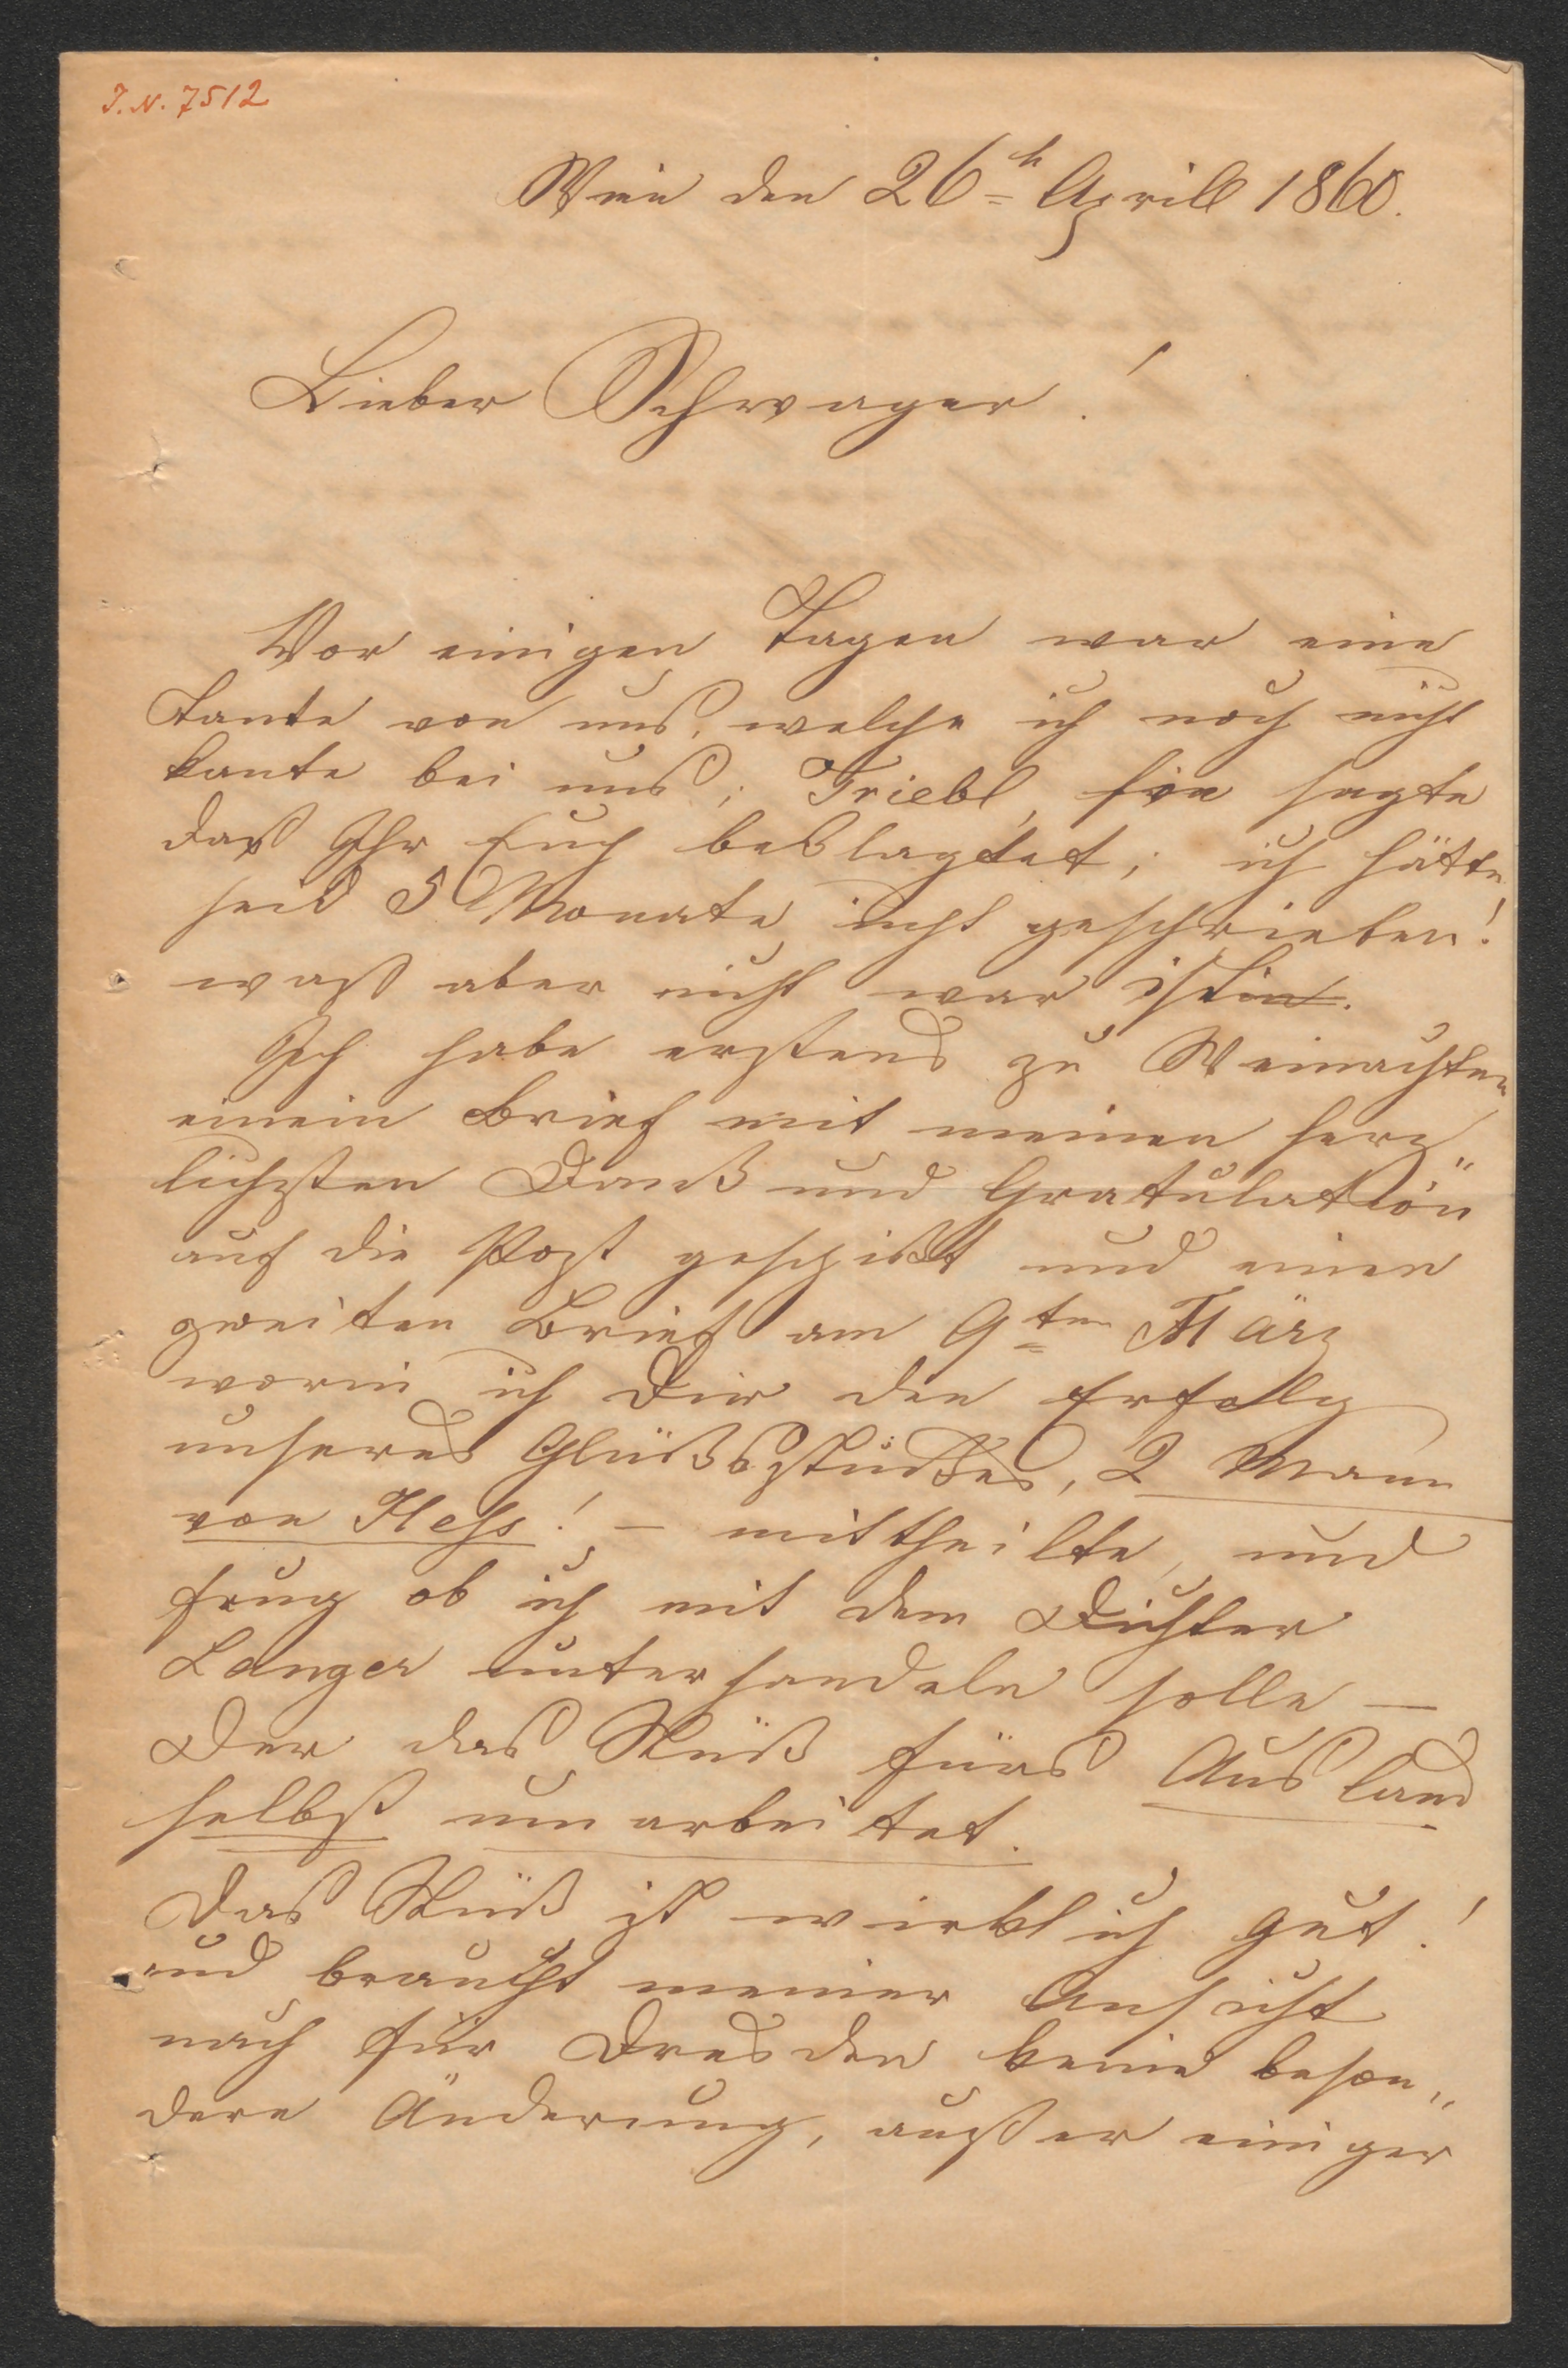 I.N. 7512
Wien den 26t April 1860.
Lieber Schwager!
Vor einigen Tagen war eine
Tante von uns, welche ich noch nicht
kante bei uns; Triebl, sie sagte
daß Ihr Euch beklagtet; ich hätte
seid 5 Monate nicht geschrieben!
waß aber nicht war ist.
Ich habe erstens zu Weinachten
einein Brief mit meinen herz„
lichsten Dank und Gratulation
auf die Post geschikt und einen
zweiten Brief am 9ten März
worin ich Dir den Erfollg
unseres Glüksstükes, 2 Mann
von Hess! – mittheilte, und
frug ob ich mit dem Dichter
Langer unterhandeln solle —
Der das Stük fürs Ausland
selbst umarbeitet.
Das Stük ist wirklich gut!
und braucht meiner Ansicht
nach für Dresden keine beson„
dere Änderung, außer einiger